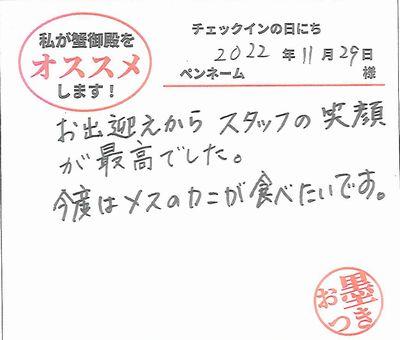 私が蟹御殿を
オススメ
します！
チェックインの日にち
2022 年 11 月 29 日
ペンネーム 様
お出迎えから スタッフの 笑顔
が最高でした。
今度はメスのカニが食べたいです。
お墨つき